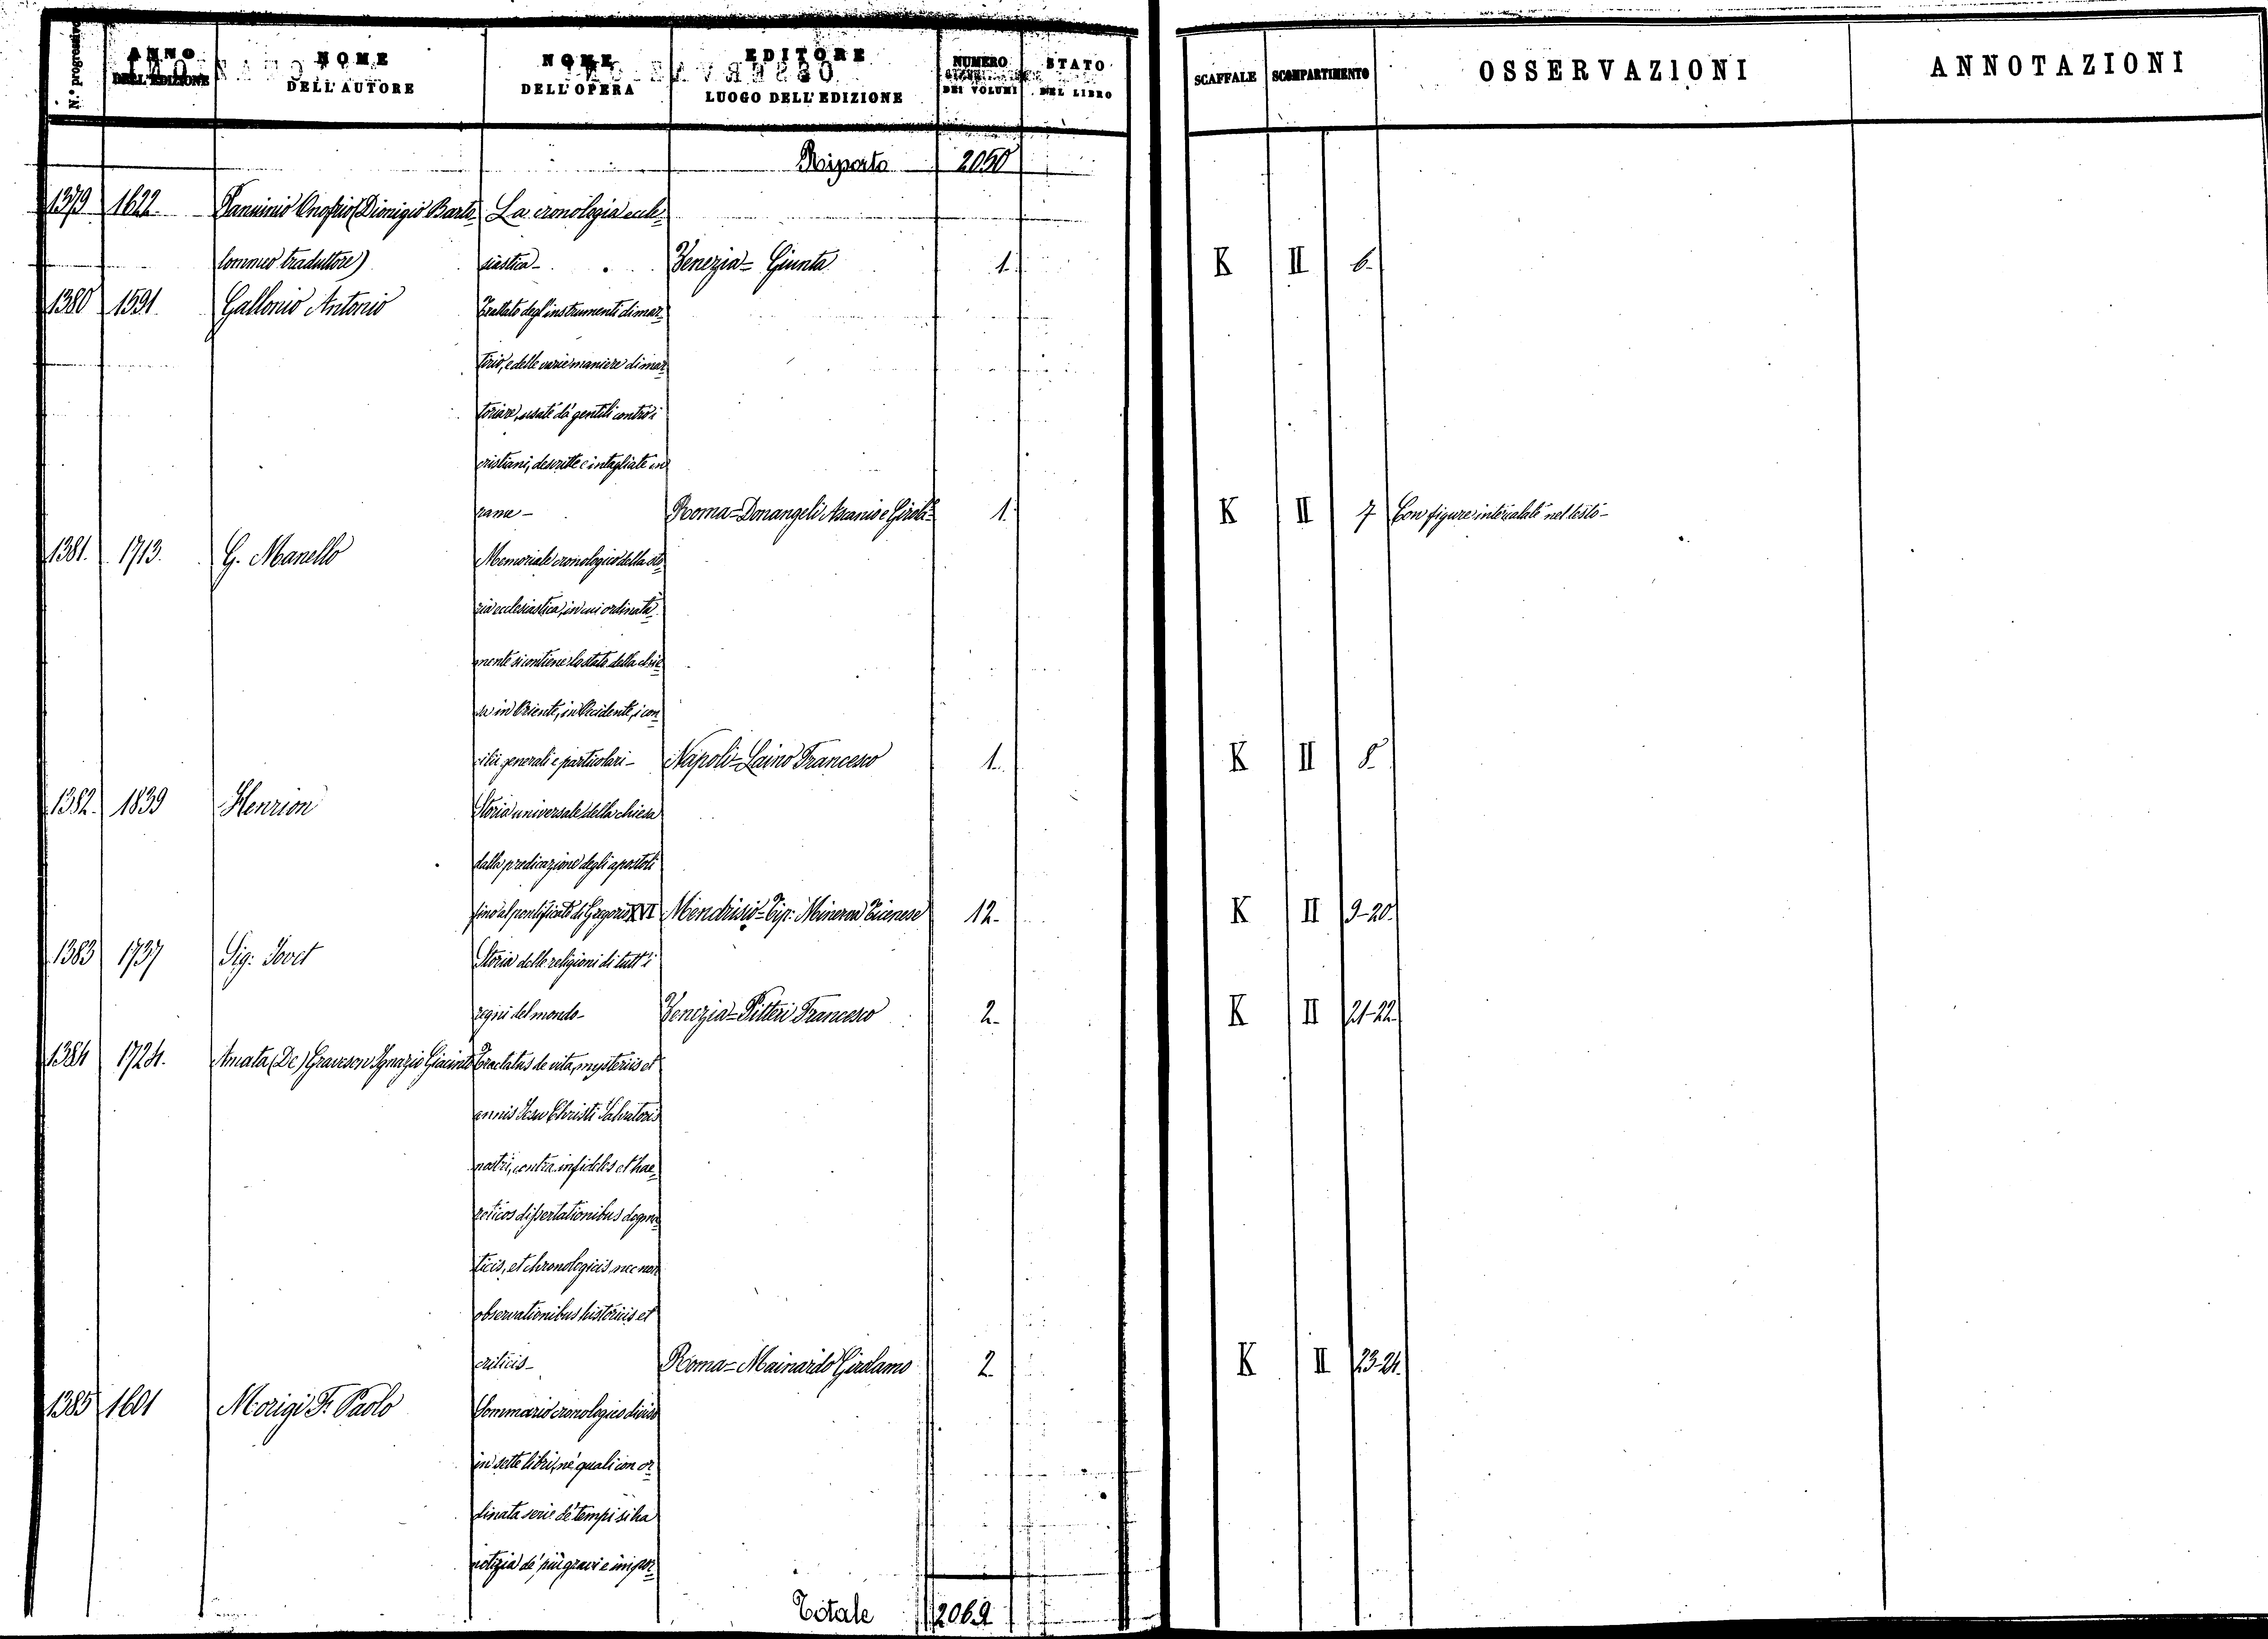 N.° progressivo ANNO DELL'EDIZIONE NOME DELL'AUTORE NOME DELL'OPERA EDITORE LUOGO DELL'EDIZIONE NUMERO DEI VOLUMI STATO DEL LIBRO SCAFFALE SCOMPARTIMENTO OSSERVAZIONI ANNOTAZIONI
Riporto 2050
1379 1622. Panvinio Onofrio (Dionigio Barto= La cronologia eccle=
lommeo traduttore) siastica- Venezia= Giunta 1. K II 6.
1380 1591. Gallonio Antonio Trattato degl'instrumenti di mar=
tirio, e delle varie maniere di mar=
toriare, usate da' gentili contro i
cristiani, descritte e intagliate in
rame- Roma=Donangeli Ascanio e Girola= 1. K II 7 Con figure intercalate nel testo-
1381. 1713. G. Manello Memoriale cronologico della sto=
ria ecclesiastica, in cui ordinata=
mente si contiene lo stato della chie=
sa in Oriente, in Occidente, i con=
cilii generali e particolari- Napoli=Laino Francesco 1. K II 8.
1382. 1839 Henrion Storia universale della chiesa
dalla predicazione degli apostoli
fino al pontificato di Gregorio XVI Mendrisio=Tip: Minerva Ticinese 12. K II 9-20.
1383 1737 Sig: Jovet Storia delle religioni di tutt'i
regni del mondo- Venezia=Pitteri Francesco 2. K II 21-22.
1384 1724. Amata (De) Graveson Ignazio Giacinto Tractatus de vita, mysteriis et
annis Jesu Christi Salvatoris
nostri, contra infideles et hae=
reticos dissertationibus dogma=
ticis, et chronologicis nec non
observationibus historicis et
criticis- Roma=Mainardo Girolamo 2 K II 23-24.
1385 1601 Morigi F. Paolo Sommario cronologico diviso
in sette libri, ne' quali con or=
dinata serie de' tempi si ha
notizia de' più gravi e impor=
Totale 2069